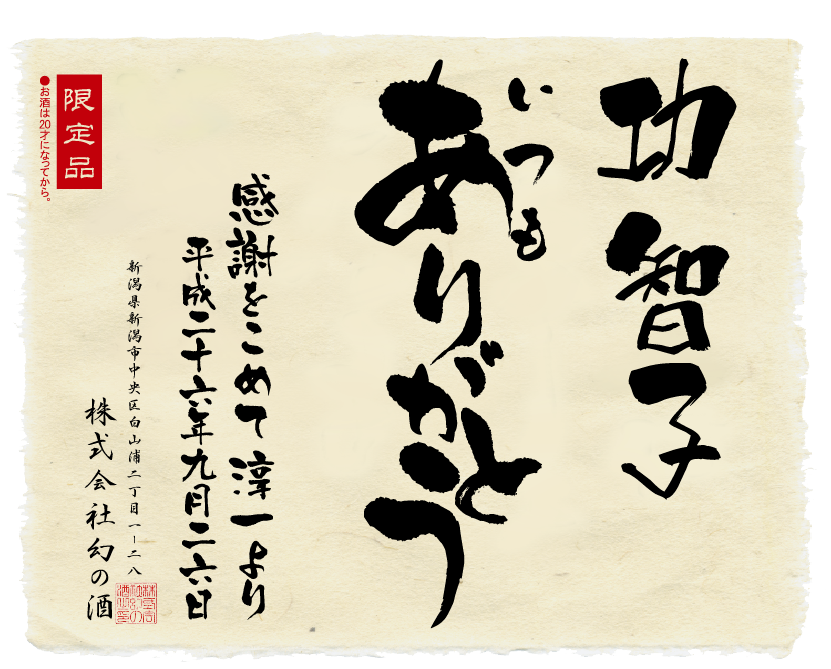 功 智子
いつも
ありがとう
感謝をこめて 淳一より
平成二十六年九月二六日
新潟県新潟市中央区白山浦二丁目一ー二八
株式会社幻の酒
限定品
●お酒は20才になってから。